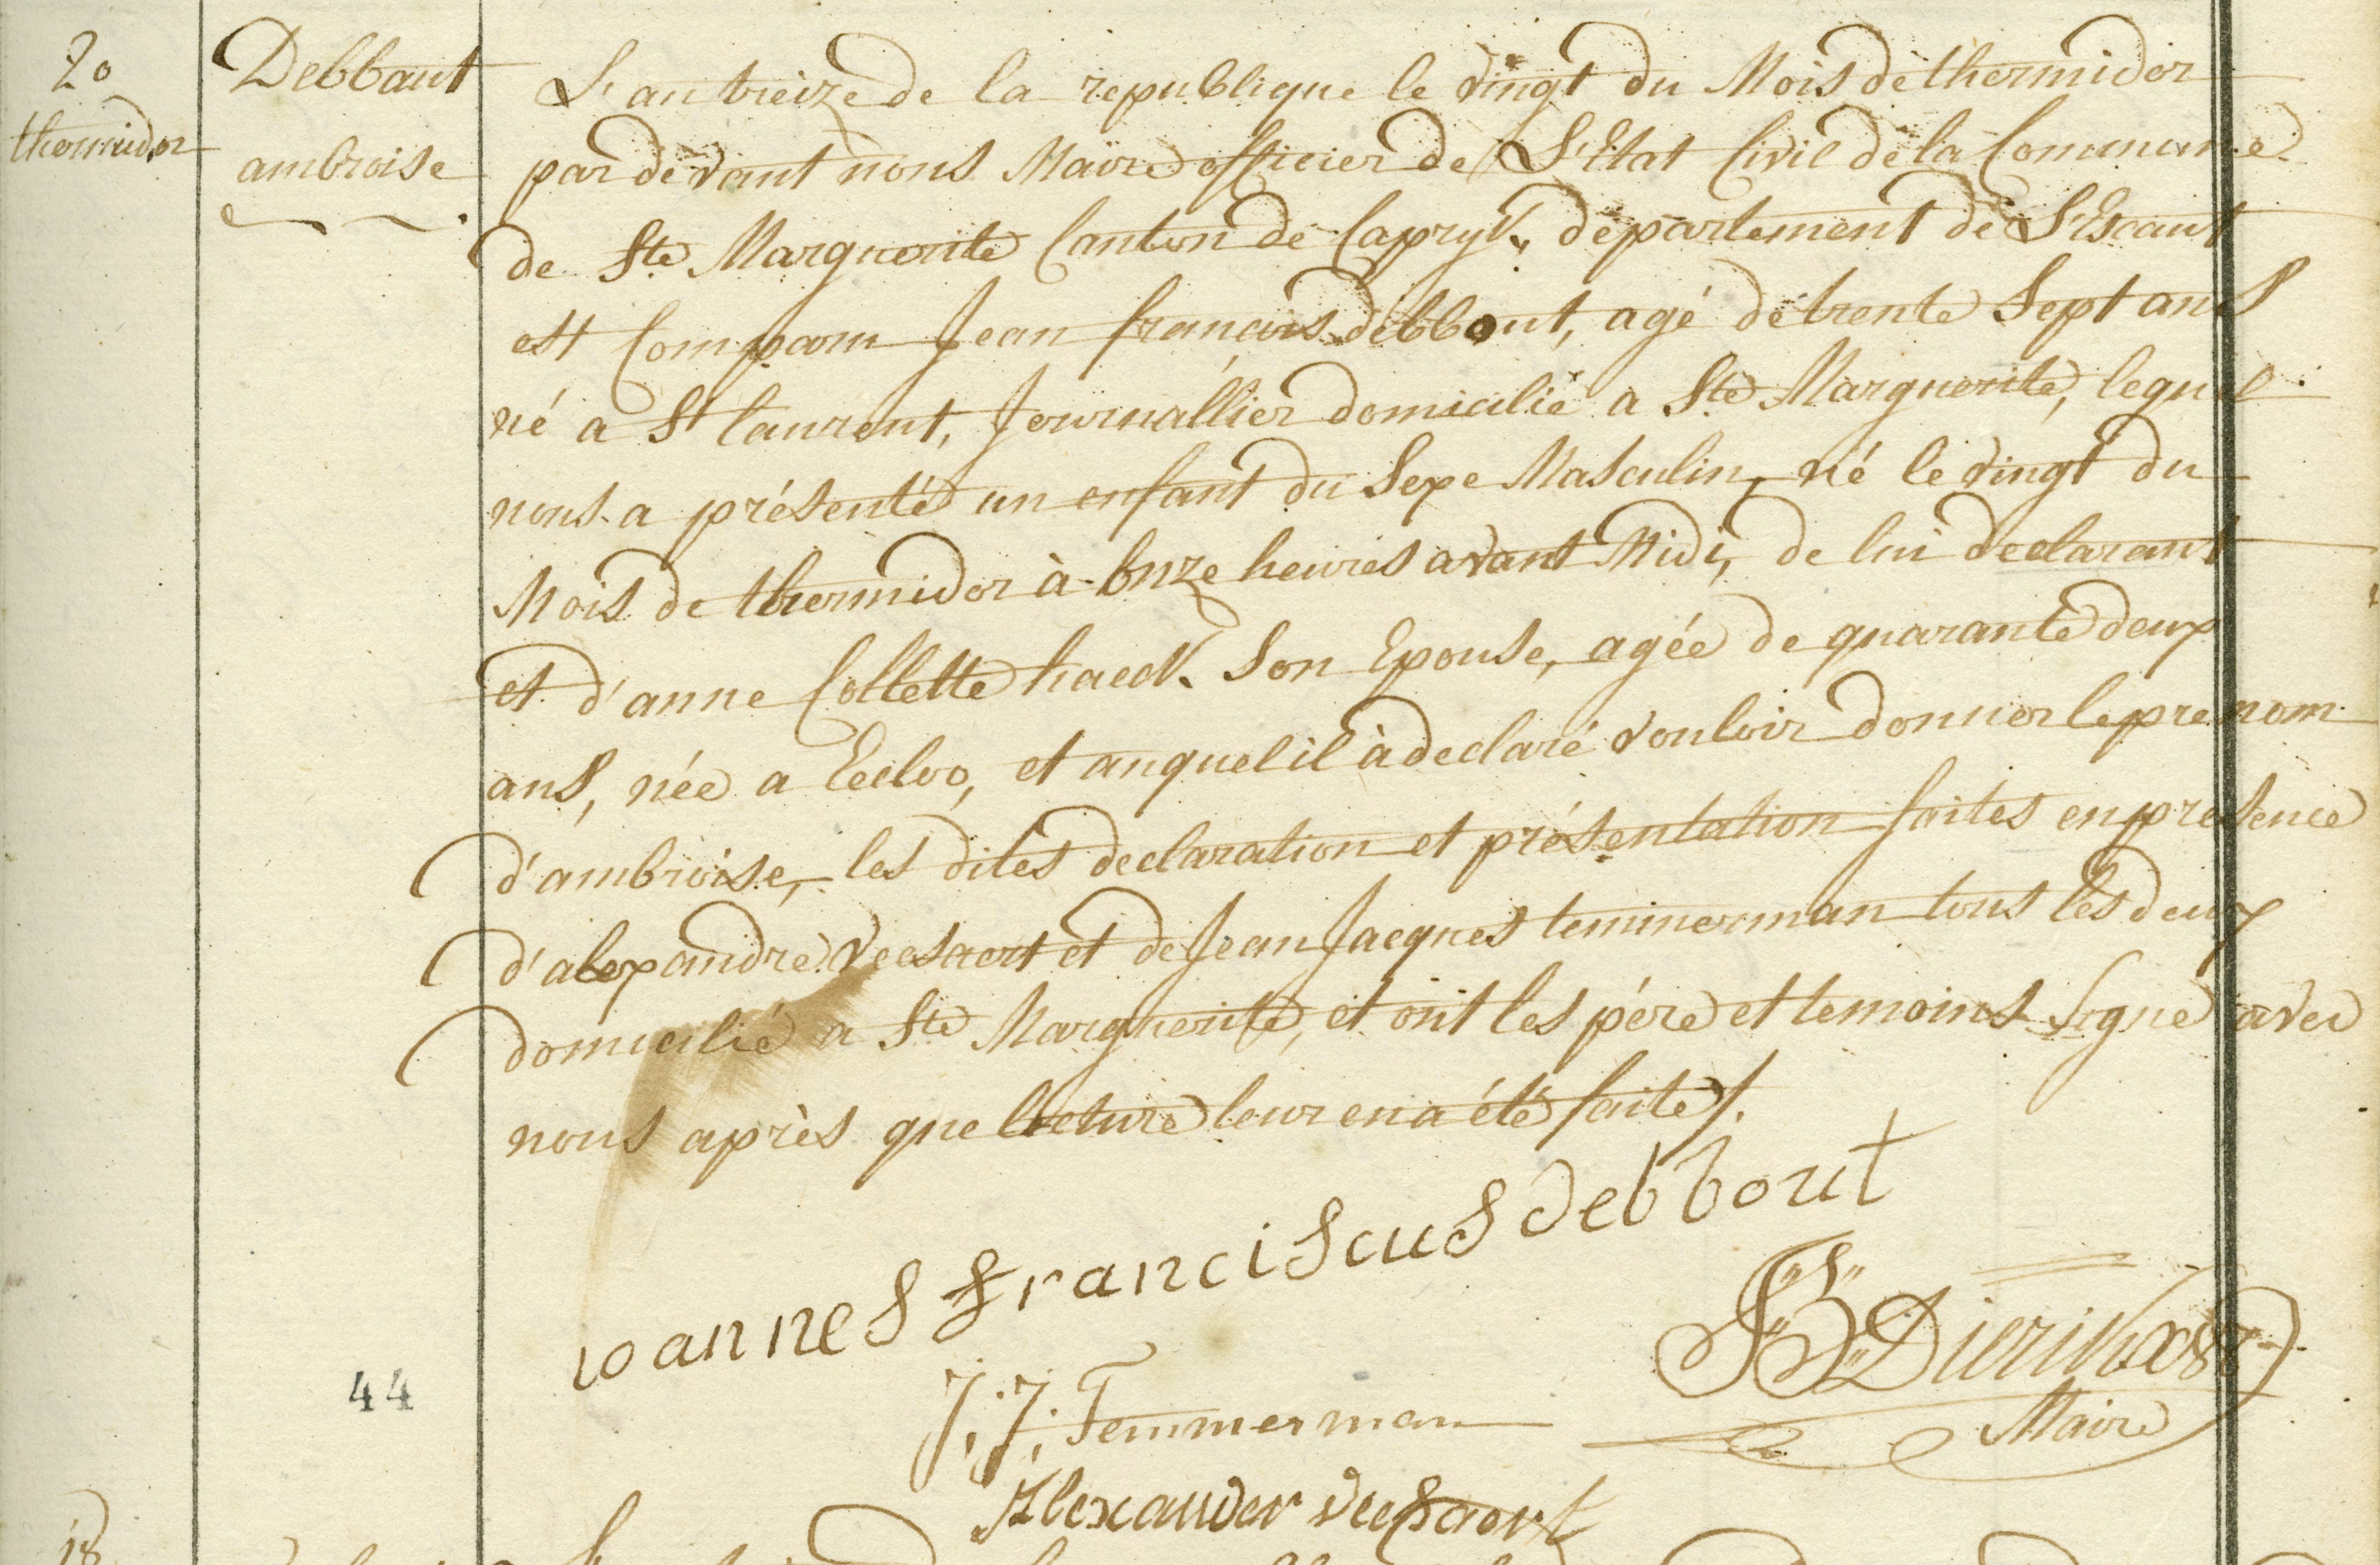 20
thermidor
Debbaut
ambroise
L'an treize de la republique le vingt du Mois de thermidor
par devant nous Maire officier de L'Etat Civil de la Commune
de Ste Marguerite Canton de Capryk, departement de L'Escaut
est Comparu Jean francois debbout, agé de trente Sept ans
né a St laurent, Journallier domicilié a Ste Marguerite, lequel
nous a présenté un enfant du Sexe Masculin, né le vingt du
Mois de thermidor à onze heures avant Midi, de lui declarant
et d'anne Collette haeck Son Epouse, agée de quarante deux
ans, née a Eecloo, et auquel il à declaré vouloir donner le prenom
d'ambroise, les dites declaration et présentation faites en presence
d'alexandre veesaert et de Jean Jacques temmerman tous les deux
domicilié a Ste Marguerite, et ont les pére et temoins Signé avec
nous après que lecture leur en a été faite /.
ioannes Franciscus debbout
JB Dierinx
Maire
44
J: J: Temmerman
Alexander veesaert
18